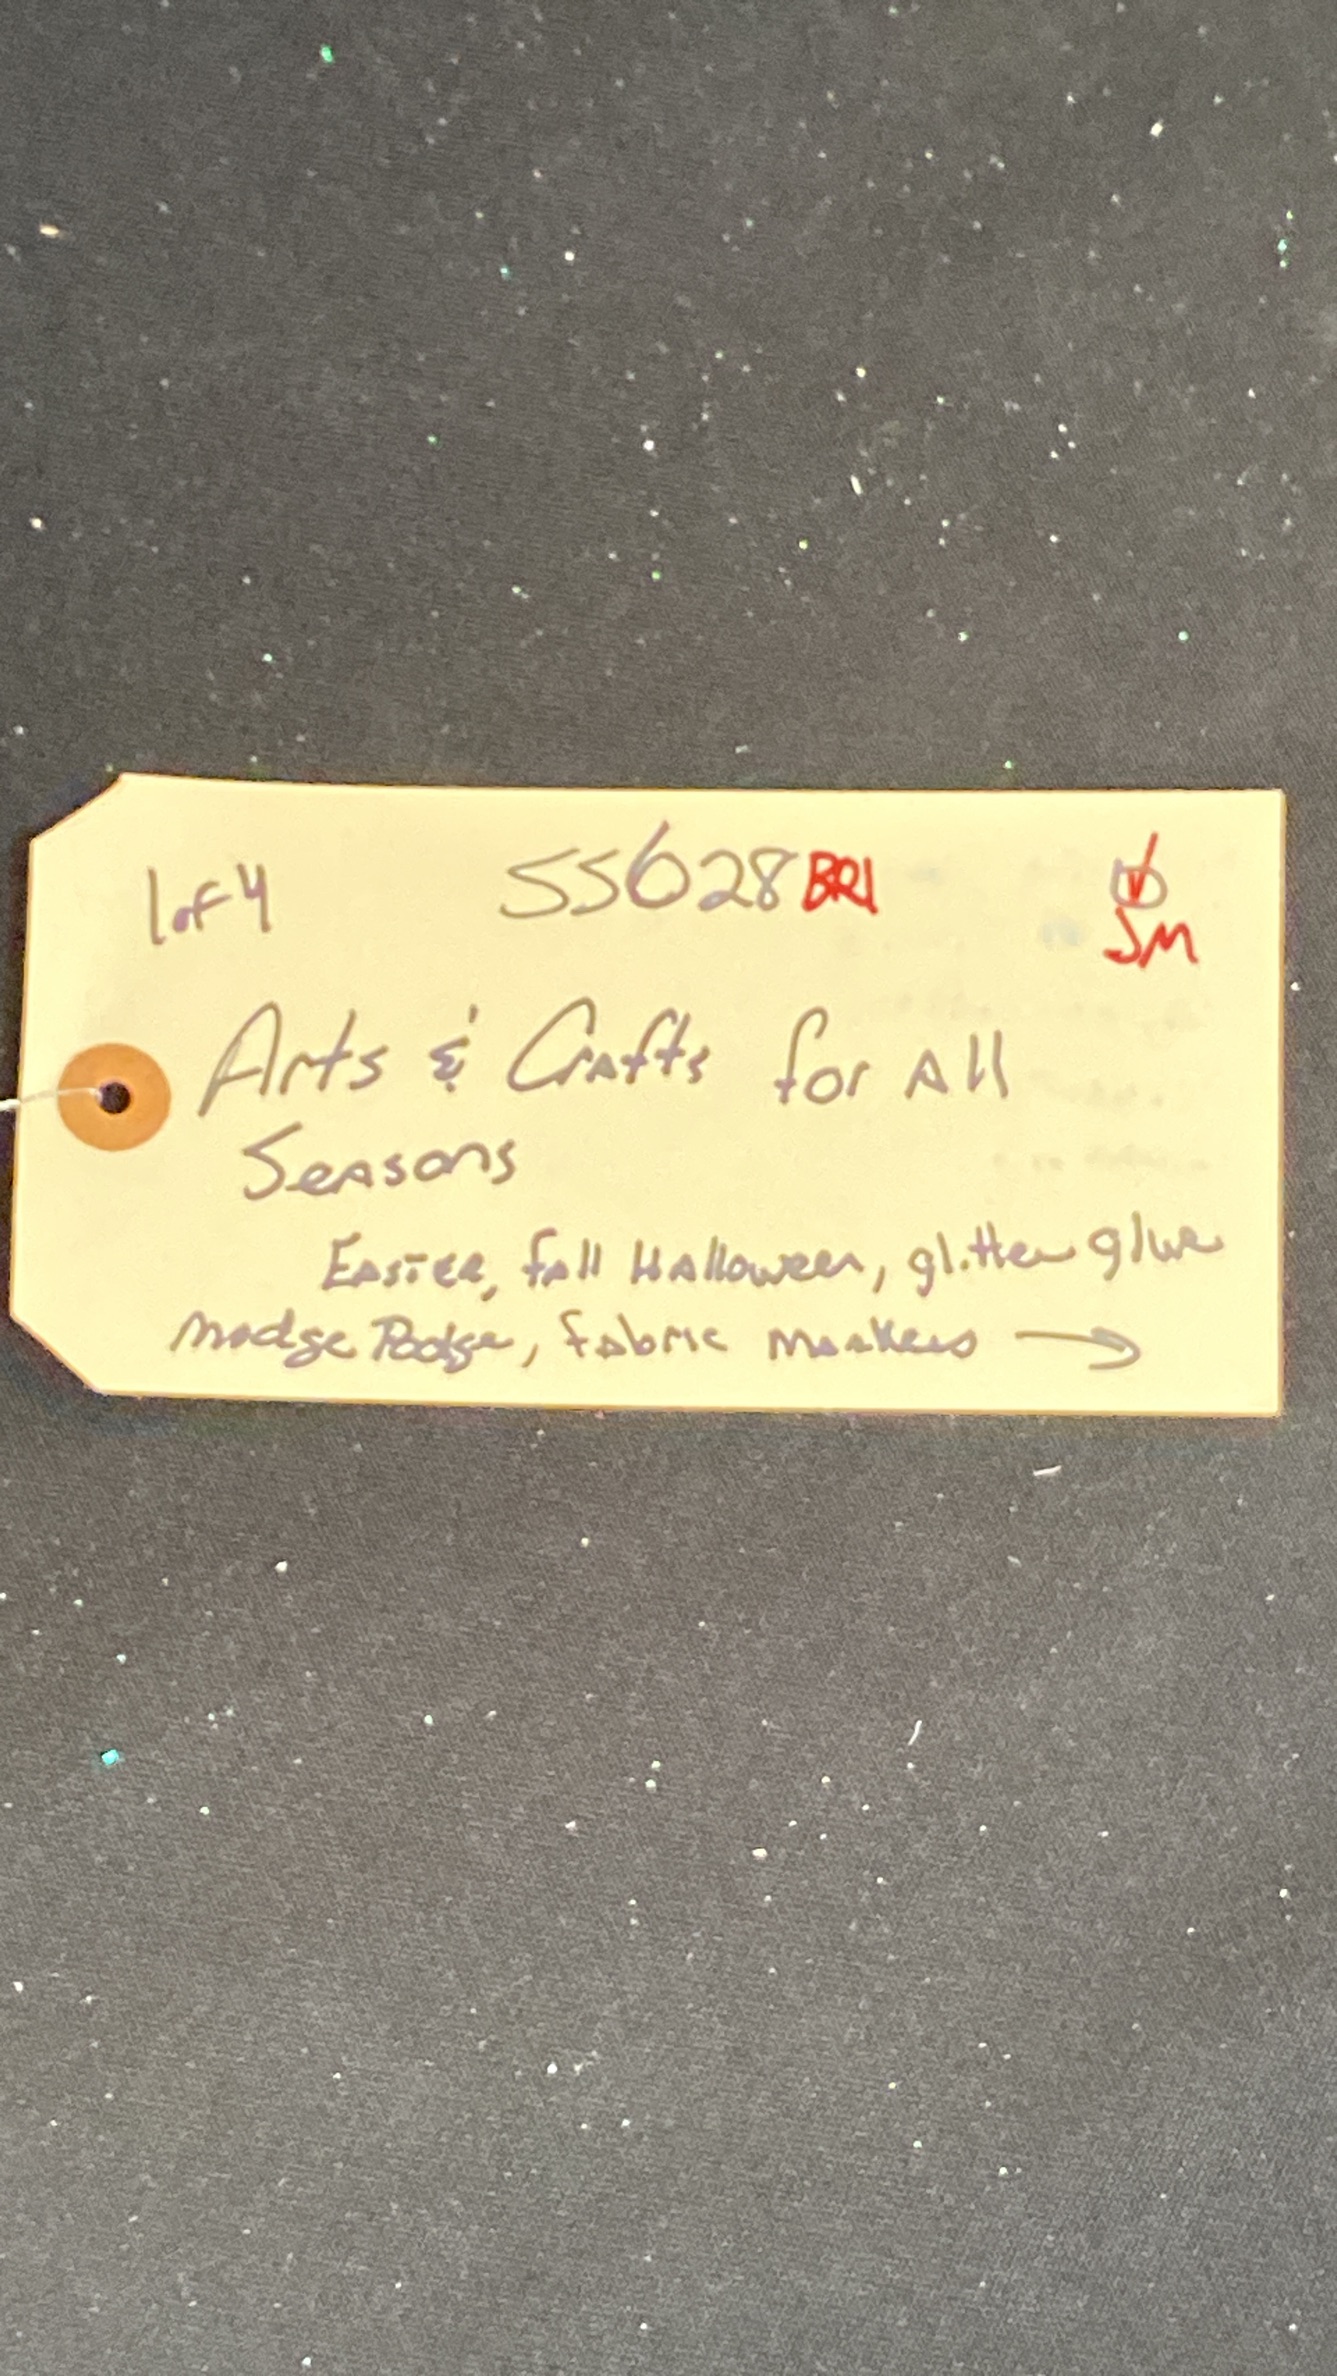 1 of 4 55628 BR1
JM
Arts & Crafts for All
Seasons
Easter, fall Halloween, glitter glue
Modge Podge, fabric markers →